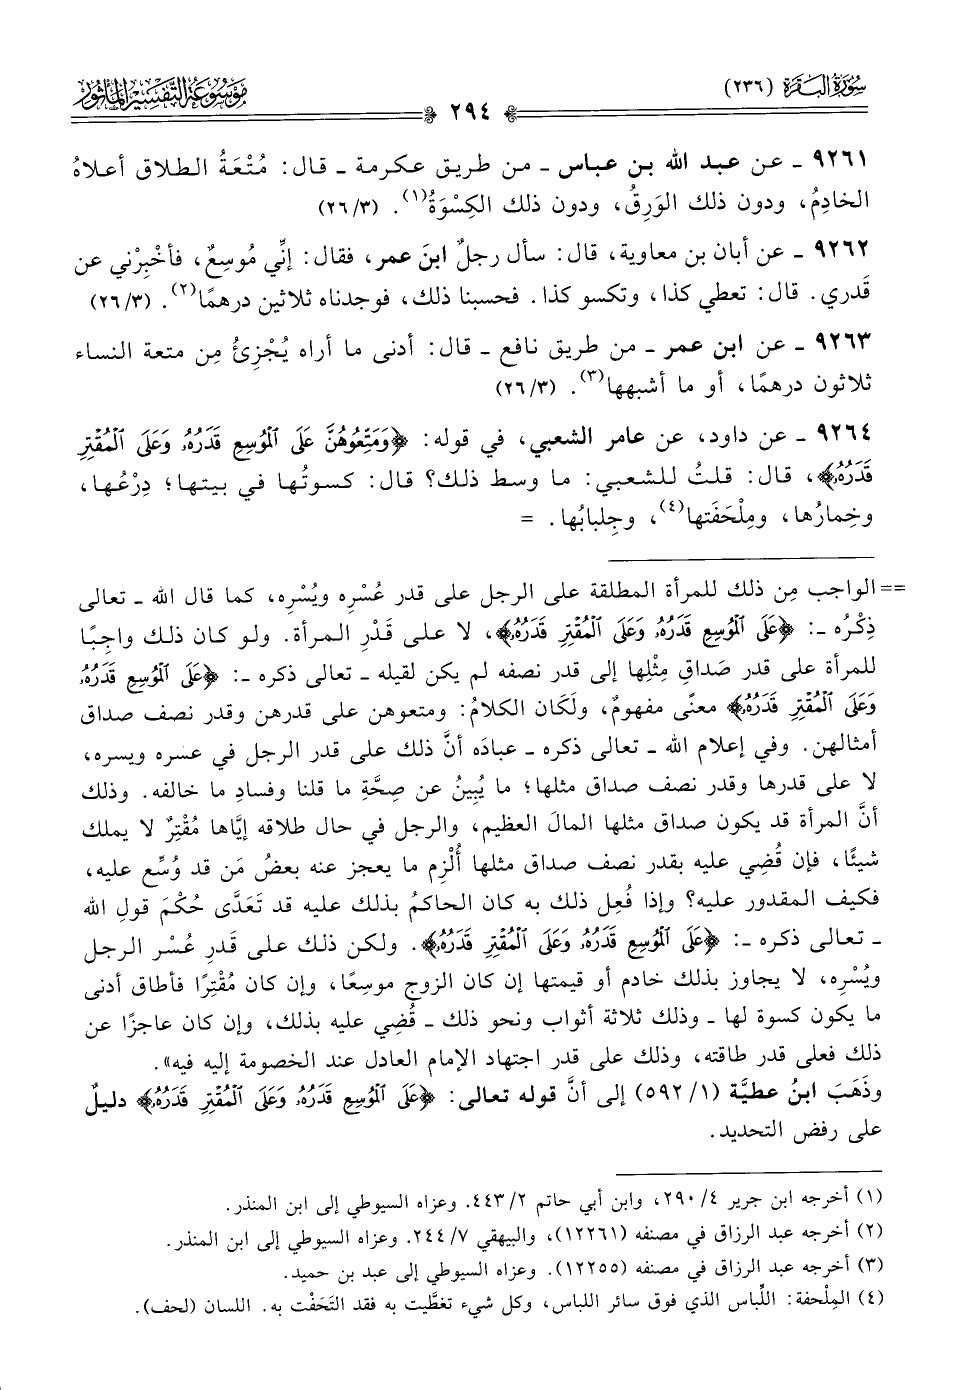 سُورَةُ البَقَرَةِ (٢٣٦)
٢٩٤
مَوْسُوعَة التَّفْسِير المَأْثُور
٩٢٦١ ـ عن عبد الله بن عباس ـ من طريق عكرمة ـ قال: مُتْعَةُ الطلاق أعلاهُ
الخادِمُ، ودون ذلك الوَرِقُ، ودون ذلك الكِسْوَةُ(١). (٣/ ٢٦)
٩٢٦٢ ـ عن أبان بن معاوية، قال: سأل رجلٌ ابنَ عمر، فقال: إنِّي مُوسِعٌ، فأخْبِرْني عن
قَدري. قال: تعطي كذا، وتكسو كذا. فحسبنا ذلك، فوجدناه ثلاثين درهمًا(٢). (٣/ ٢٦)
٩٢٦٣ ـ عن ابن عمر ـ من طريق نافع ـ قال: أدنى ما أراه يُجْزِئُ مِن متعة النساء
ثلاثون درهمًا، أو ما أشبهها(٣). (٣/ ٢٦)
٩٢٦٤ ـ عن داود، عن عامر الشعبي، في قوله: ﴿وَمَتِّعُوهُنَّ عَلَى ٱلْمُوسِعِ قَدَرُهُۥ وَعَلَى ٱلْمُقْتِرِ
قَدَرُهُۥ﴾، قال: قلتُ للشعبي: ما وسط ذلك؟ قال: كسوتُها في بيتها؛ دِرْعُها،
وخِمارُها، ومِلْحَفَتها(٤)، وجِلبابُها. =
== الواجب مِن ذلك للمرأة المطلقة على الرجل على قدر عُسْرِه ويُسْرِه، كما قال الله ـ تعالى
ذِكْرُه ـ: ﴿عَلَى ٱلْمُوسِعِ قَدَرُهُۥ وَعَلَى ٱلْمُقْتِرِ قَدَرُهُۥ﴾، لا على قَدْرِ المرأة. ولو كان ذلك واجِبًا
للمرأة على قدر صَداقِ مِثْلِها إلى قدر نصفه لم يكن لقيله ـ تعالى ذكره ـ: ﴿عَلَى ٱلْمُوسِعِ قَدَرُهُۥ
وَعَلَى ٱلْمُقْتِرِ قَدَرُهُۥ﴾ معنًى مفهومٌ، ولَكَان الكلامُ: ومتعوهن على قدرهن وقدر نصف صداق
أمثالهن. وفي إعلام الله ـ تعالى ذكره ـ عبادَه أنَّ ذلك على قدر الرجل في عسره ويسره،
لا على قدرها وقدر نصف صداق مثلها؛ ما يُبِينُ عن صِحَّةِ ما قلنا وفسادِ ما خالفه. وذلك
أنَّ المرأة قد يكون صداق مثلها المالَ العظيم، والرجل في حال طلاقه إيَّاها مُقْتِرٌ لا يملك
شيئًا، فإن قُضِي عليه بقدر نصف صداق مثلها أُلْزِم ما يعجز عنه بعضُ مَن قد وُسِّع عليه،
فكيف المقدور عليه؟ وإذا فُعِل ذلك به كان الحاكمُ بذلك عليه قد تَعَدَّى حُكْمَ قولِ الله
ـ تعالى ذكره ـ: ﴿عَلَى ٱلْمُوسِعِ قَدَرُهُۥ وَعَلَى ٱلْمُقْتِرِ قَدَرُهُۥ﴾. ولكن ذلك على قَدرِ عُسْر الرجل
ويُسْرِه، لا يجاوز بذلك خادم أو قيمتها إن كان الزوج موسِعًا، وإن كان مُقْتِرًا فأطاق أدنى
ما يكون كسوة لها ـ وذلك ثلاثة أثواب ونحو ذلك ـ قُضِي عليه بذلك، وإن كان عاجزًا عن
ذلك فعلى قدر طاقته، وذلك على قدر اجتهاد الإمام العادل عند الخصومة إليه فيه».
وذَهَبَ ابنُ عطيَّة (١/ ٥٩٢) إلى أنَّ قوله تعالى: ﴿عَلَى ٱلْمُوسِعِ قَدَرُهُۥ وَعَلَى ٱلْمُقْتِرِ قَدَرُهُۥ﴾ دليلٌ
على رفض التحديد.
(١) أخرجه ابن جرير ٤/ ٢٩٠، وابن أبي حاتم ٢/ ٤٤٣. وعزاه السيوطي إلى ابن المنذر.
(٢) أخرجه عبد الرزاق في مصنفه (١٢٢٦١)، والبيهقي ٧/ ٢٤٤. وعزاه السيوطي إلى ابن المنذر.
(٣) أخرجه عبد الرزاق في مصنفه (١٢٢٥٥). وعزاه السيوطي إلى عبد بن حميد.
(٤) المِلْحفة: اللِّباس الذي فوق سائر اللباس، وكل شيء تغطَّيت به فقد التَحَفْت به. اللسان (لحف).